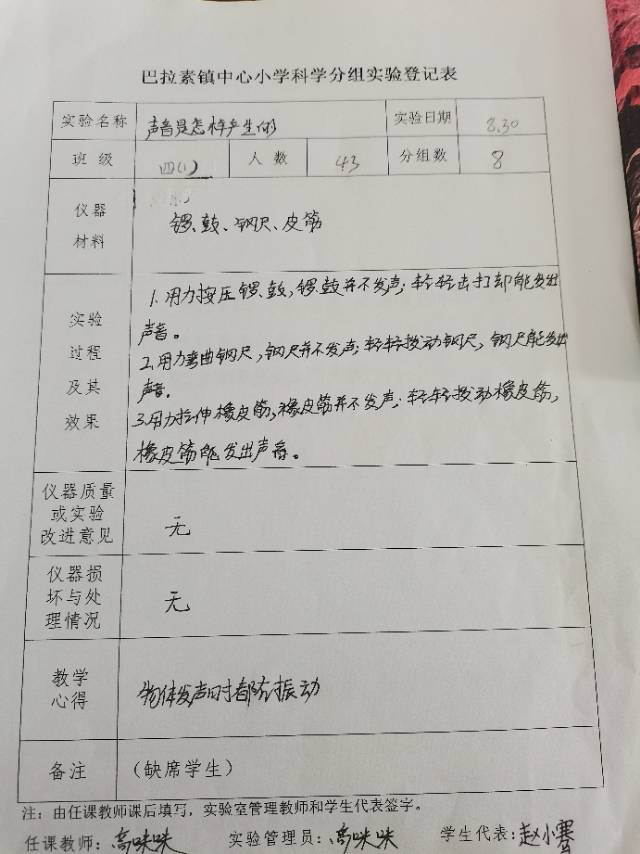 巴拉素镇中心小学科学分组实验登记表
实验名称 声音是怎样产生的 实验日期 8.30
班级 四(1) 人数 43 分组数 8
仪器材料 锣、鼓、钢尺、皮筋
实验过程及其效果
1.用力按压锣、鼓,锣鼓并不发声;轻轻击打却能发出
声音。
2.用力弯曲钢尺,钢尺并不发声;轻轻拨动钢尺,钢尺能发出
声音.
3.用力拉伸橡皮筋,橡皮筋并不发声;轻轻拨动橡皮筋,
橡皮筋能发出声音。
仪器质量
或实验
改进意见 无
仪器损
坏与处
理情况 无
教学
心得 物体发声时都在振动
备注 (缺席学生)
注:由任课教师课后填写,实验室管理教师和学生代表签字。
任课教师:高咪咪 实验管理员:高咪咪 学生代表:赵小赛